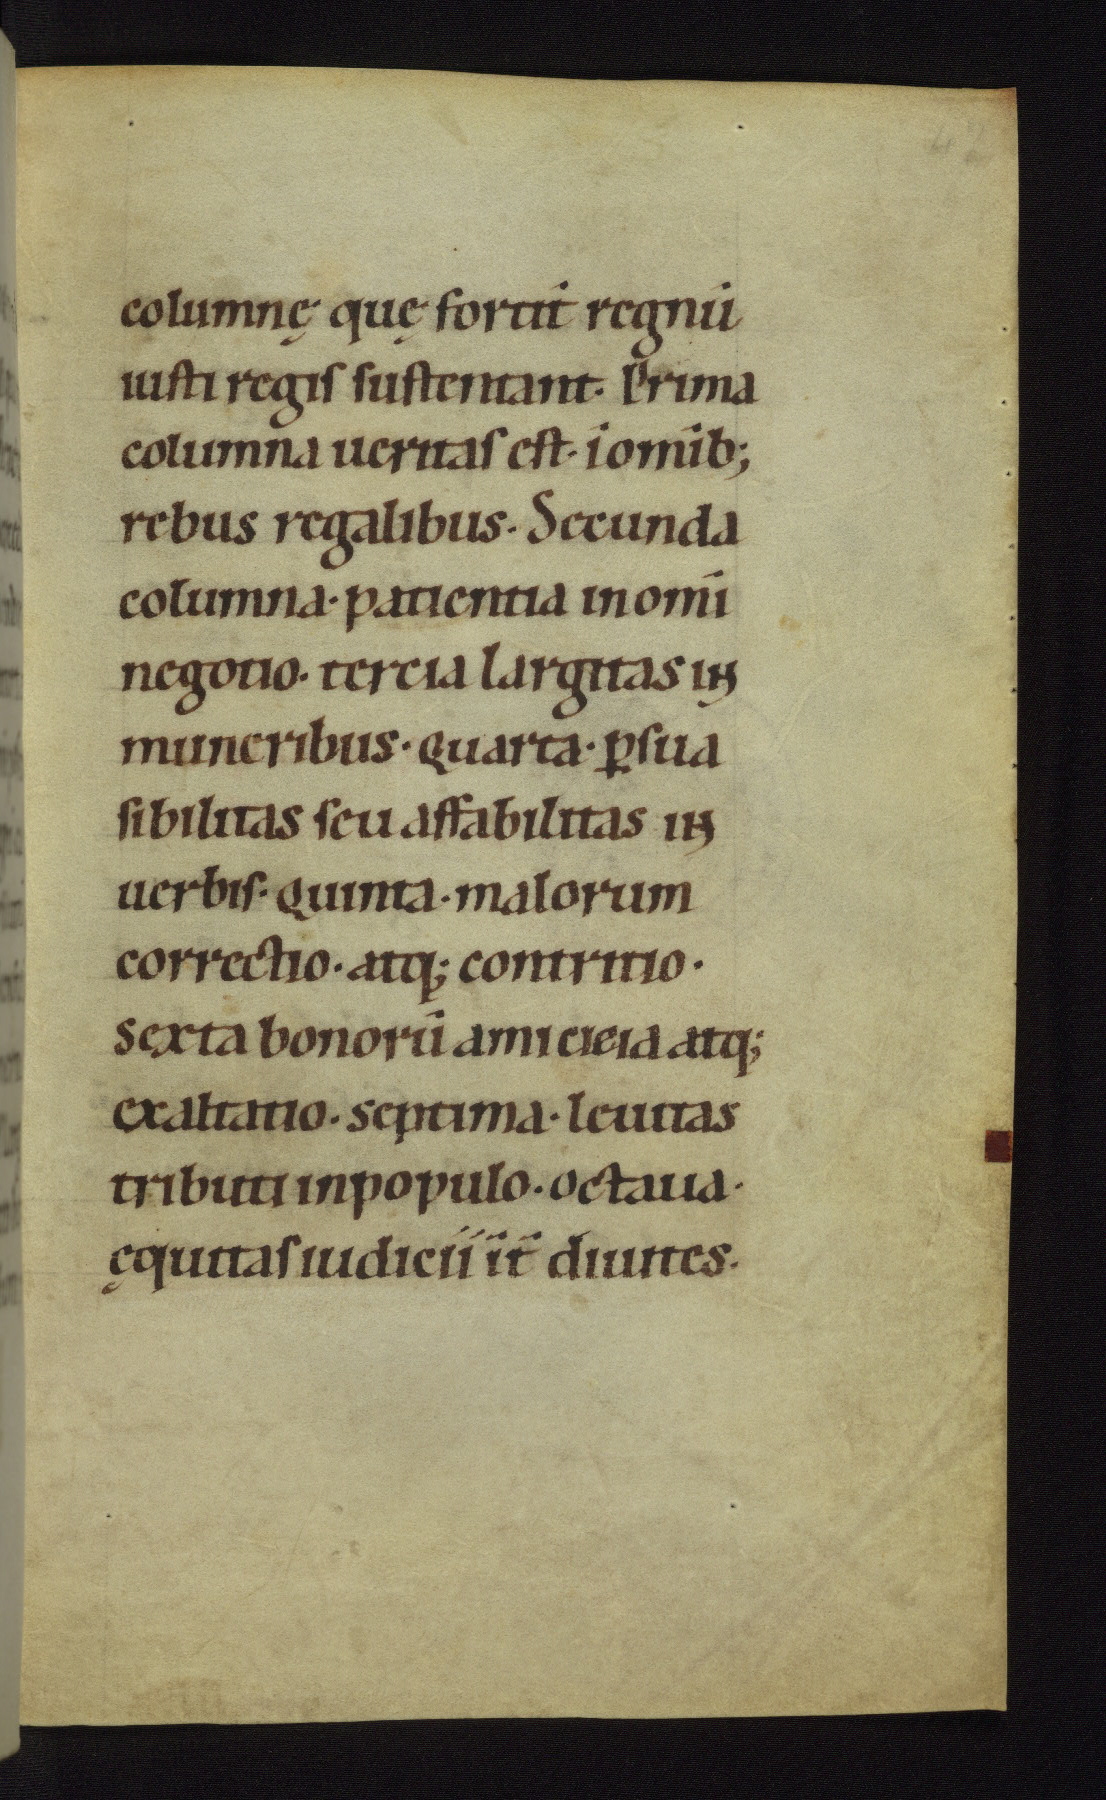 42
columnę quę fortit̄ regnū
iusti regis sustentant. Prima
columna ueritas est. i om̄ib;
rebus regalibus. Secunda
columna. patientia in om̄i
negotio. tercia largitas in
muneribus. quarta. ꝑsua
sibilitas seu affabilitas in
uerbis. quinta. malorum
correctio. atq; contritio.
sexta bonorū amicicia atq;
exaltatio. septima. leuitas
tributi in populo. octaua.
ęquitas iudicíí ít̄ diuites.